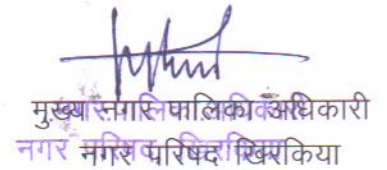 मुख्य नगर पालिका अधिकारी
नगर परिषद खिरकिया